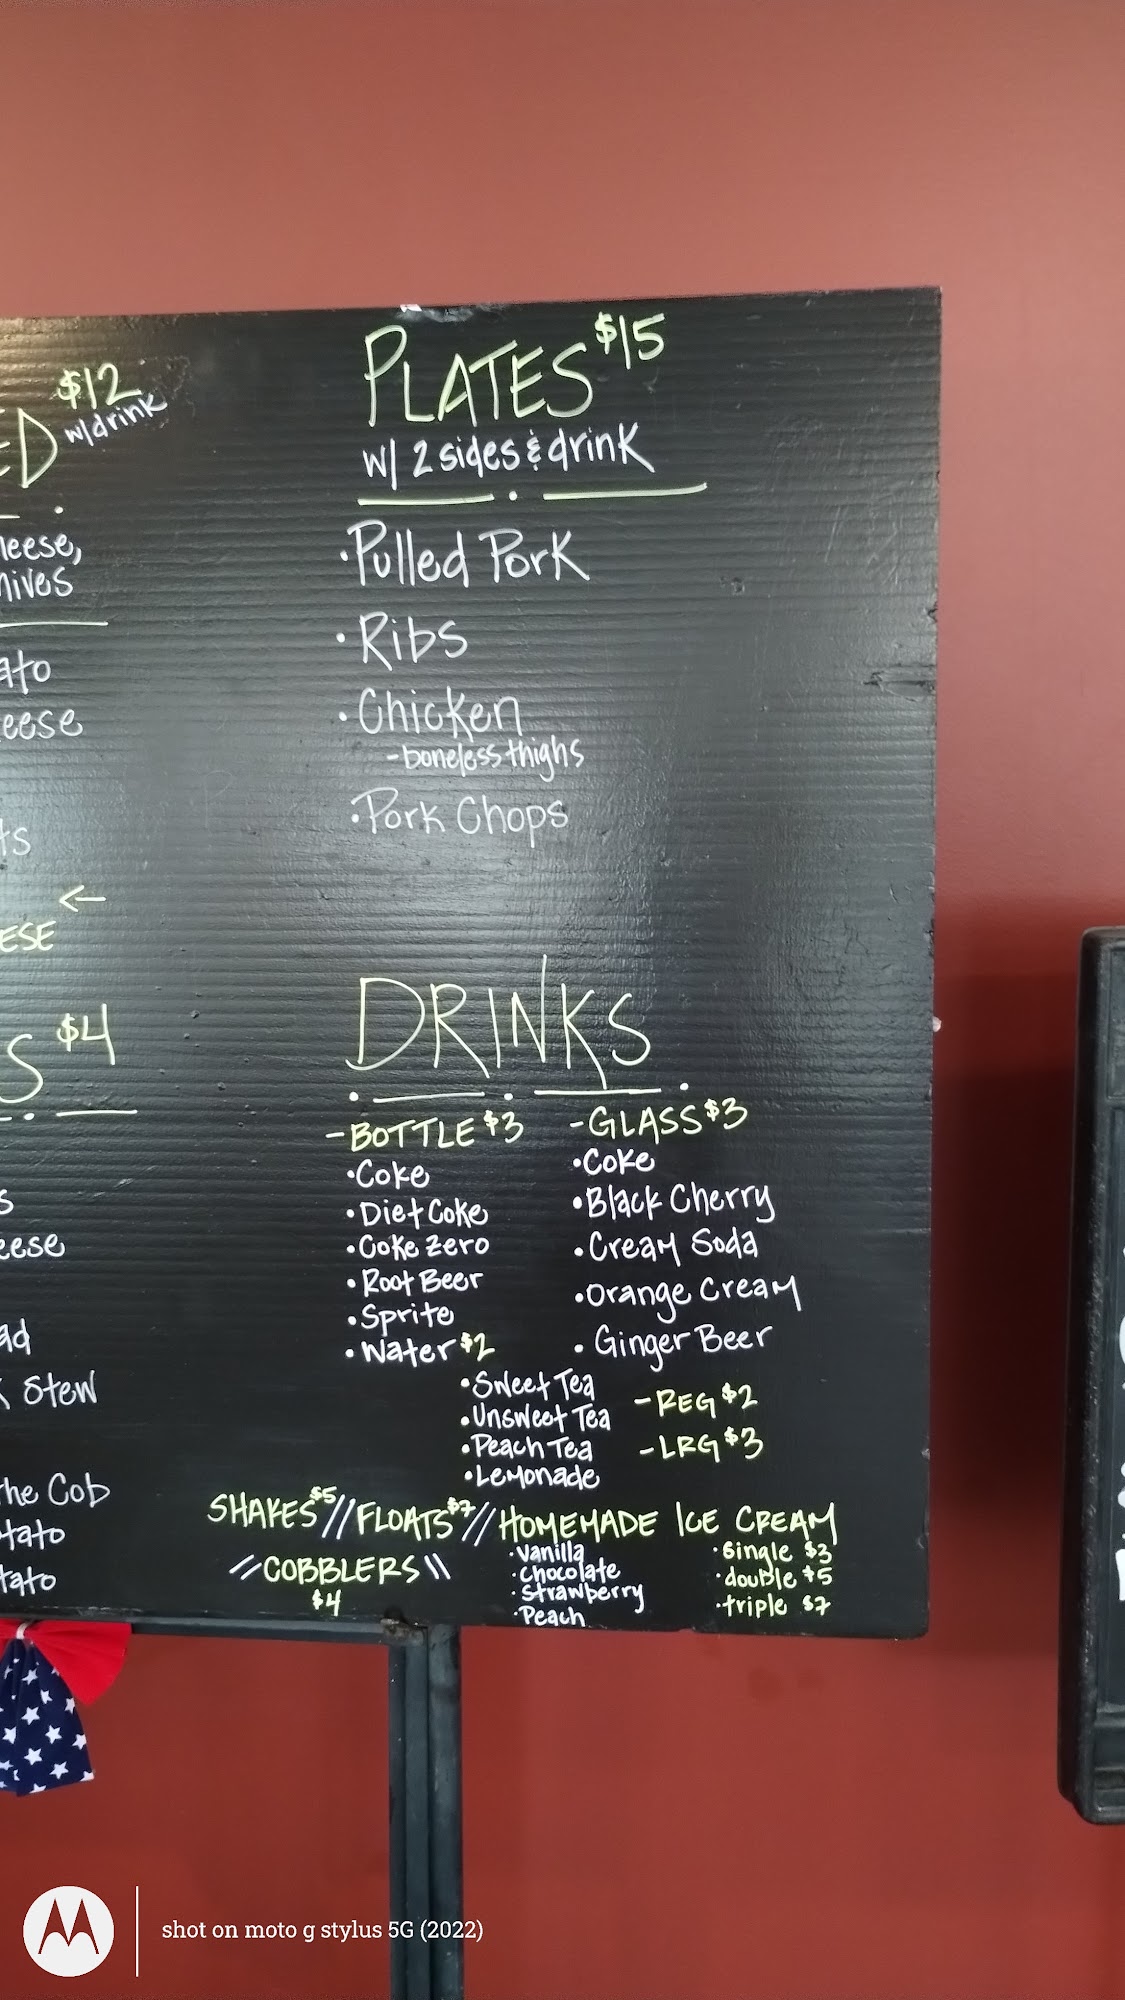 $12
w/drink
PLATES $15
w/ 2 sides & drink
• Pulled Pork
• Ribs
• Chicken
- boneless thighs
• Pork Chops
$4
Stew
the Cob
DRINKS
- BOTTLE $3
• Coke
• Diet Coke
• Coke Zero
• Root Beer
• Sprite
• Water $2
- GLASS $3
• Coke
• Black Cherry
• Cream Soda
• Orange Cream
• Ginger Beer
• Sweet Tea
• Unsweet Tea
• Peach Tea
• Lemonade
- REG $2
- LRG $3
SHAKES $5 // FLOATS $7 // HOMEMADE ICE CREAM
// COBBLERS \\
$4
• Vanilla
• Chocolate
• Strawberry
• Peach
• single $3
• double $5
• triple $7
shot on moto g stylus 5G (2022)